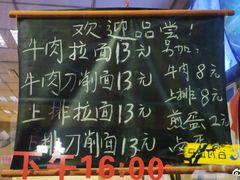 欢迎品尝！
牛肉拉面13元
牛肉刀削面13元
上排拉面13元
上排刀削面13元
另加：
牛肉8元
上排8元
煎蛋2元
下午16:00